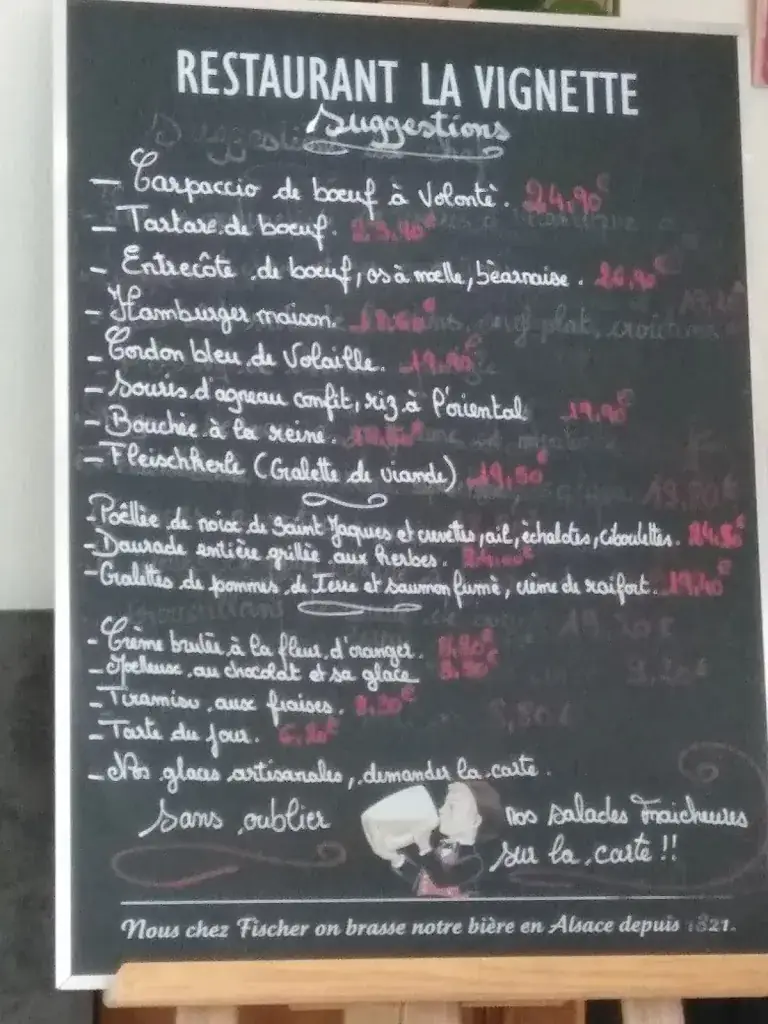 RESTAURANT LA VIGNETTE
Suggestions
- Carpaccio de boeuf à Volonté. 24,90€
- Tartare de boeuf. 23,90€
- Entrecôte de boeuf, os à moelle, béarnaise. 26,90€
- Hamburger maison.
- Cordon bleu de Volaille. 19,90€
- Souris d'agneau confit, riz à l'oriental 19,90€
- Bouchée à la reine.
- Fleischkerle (Galette de viande) 19,50€
- Poêllée de noix de Saint Jaques et crevettes, ail, échalotes, ciboulettes. 24,50€
- Daurade entière grillée aux herbes.
- Galettes de pommes de Terre et saumon fumé, crème de raifort. 19,40€
- Crème brulée à la fleur d'oranger.
- Moelleux au chocolat et sa glace
- Tiramisu aux fraises. 8,20€
- Tarte du jour.
- Nos glaces artisanales, demander la carte.
Sans oublier nos salades Fraicheures
sur la carte !!
Nous chez Fischer on brasse notre bière en Alsace depuis 1821.